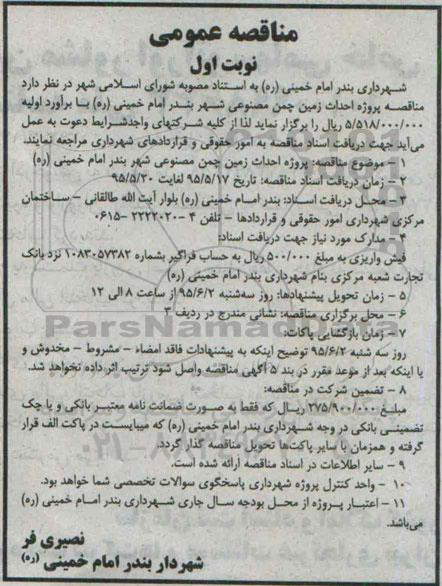 مناقصه عمومی
نوبت اول
شهرداری بندر امام خمینی (ره) به استناد مصوبه شورای اسلامی شهر در نظر دارد
مناقصه پروژه احداث زمین چمن مصنوعی شهر بندر امام خمینی (ره) با برآورد اولیه
۵/۵۱۸/۰۰۰/۰۰۰ ریال را برگزار نماید لذا از کلیه شرکتهای واجدشرایط دعوت به عمل
می‌آید جهت دریافت اسناد مناقصه به امور حقوقی و قراردادهای شهرداری مراجعه نمایند.
۱ – موضوع مناقصه: پروژه احداث زمین چمن مصنوعی شهر بندر امام خمینی (ره)
۲ – زمان دریافت اسناد مناقصه: تاریخ ۹۵/۵/۱۷ لغایت ۹۵/۵/۳۰
۳ – محل دریافت اسناد: بندر امام خمینی (ره) بلوار آیت الله طالقانی – ساختمان
مرکزی شهرداری امور حقوقی و قراردادها – تلفن ۴ –۲۲۲۲۰۲۰ –۰۶۱۵
۴ – مدارک مورد نیاز جهت دریافت اسناد:
فیش واریزی به مبلغ ۵۰۰/۰۰۰ ریال به حساب فراگیر بشماره ۱۰۸۳۰۵۷۳۸۲ نزد بانک
تجارت شعبه مرکزی بنام شهرداری بندر امام خمینی (ره)
۵ – زمان تحویل پیشنهادها: روز سه‌شنبه ۹۵/۶/۲ از ساعت ۸ الی ۱۲
۶ – محل برگزاری مناقصه: نشانی مندرج در ردیف ۳
۷– زمان بازگشایی پاکات:
روز سه شنبه ۹۵/۶/۲ توضیح اینکه به پیشنهادات فاقد امضاء – مشروط – مخدوش و
یا اینکه بعد از موعد مقرر در بند ۵ آگهی مناقصه واصل شود ترتیب اثر داده نخواهد شد.
۸ – تضمین شرکت در مناقصه:
مبلغ ۲۷۵/۹۰۰/۰۰۰ ریال که فقط به صورت ضمانت نامه معتبر بانکی و یا چک
تضمینی بانکی در وجه شهرداری بندر امام خمینی (ره) که میبایست در پاکت الف قرار
گرفته و همزمان با سایر پاکت‌ها تحویل مناقصه گذار گردد.
۹ – سایر اطلاعات در اسناد مناقصه ارائه شده است.
۱۰ – واحد کنترل پروژه شهرداری پاسخگوی سوالات تخصصی شما خواهد بود.
۱۱ – اعتبار پروژه از محل بودجه سال جاری شهرداری بندر امام خمینی (ره)
می‌باشد.
نصیری فر
شهردار بندر امام خمینی (ره)